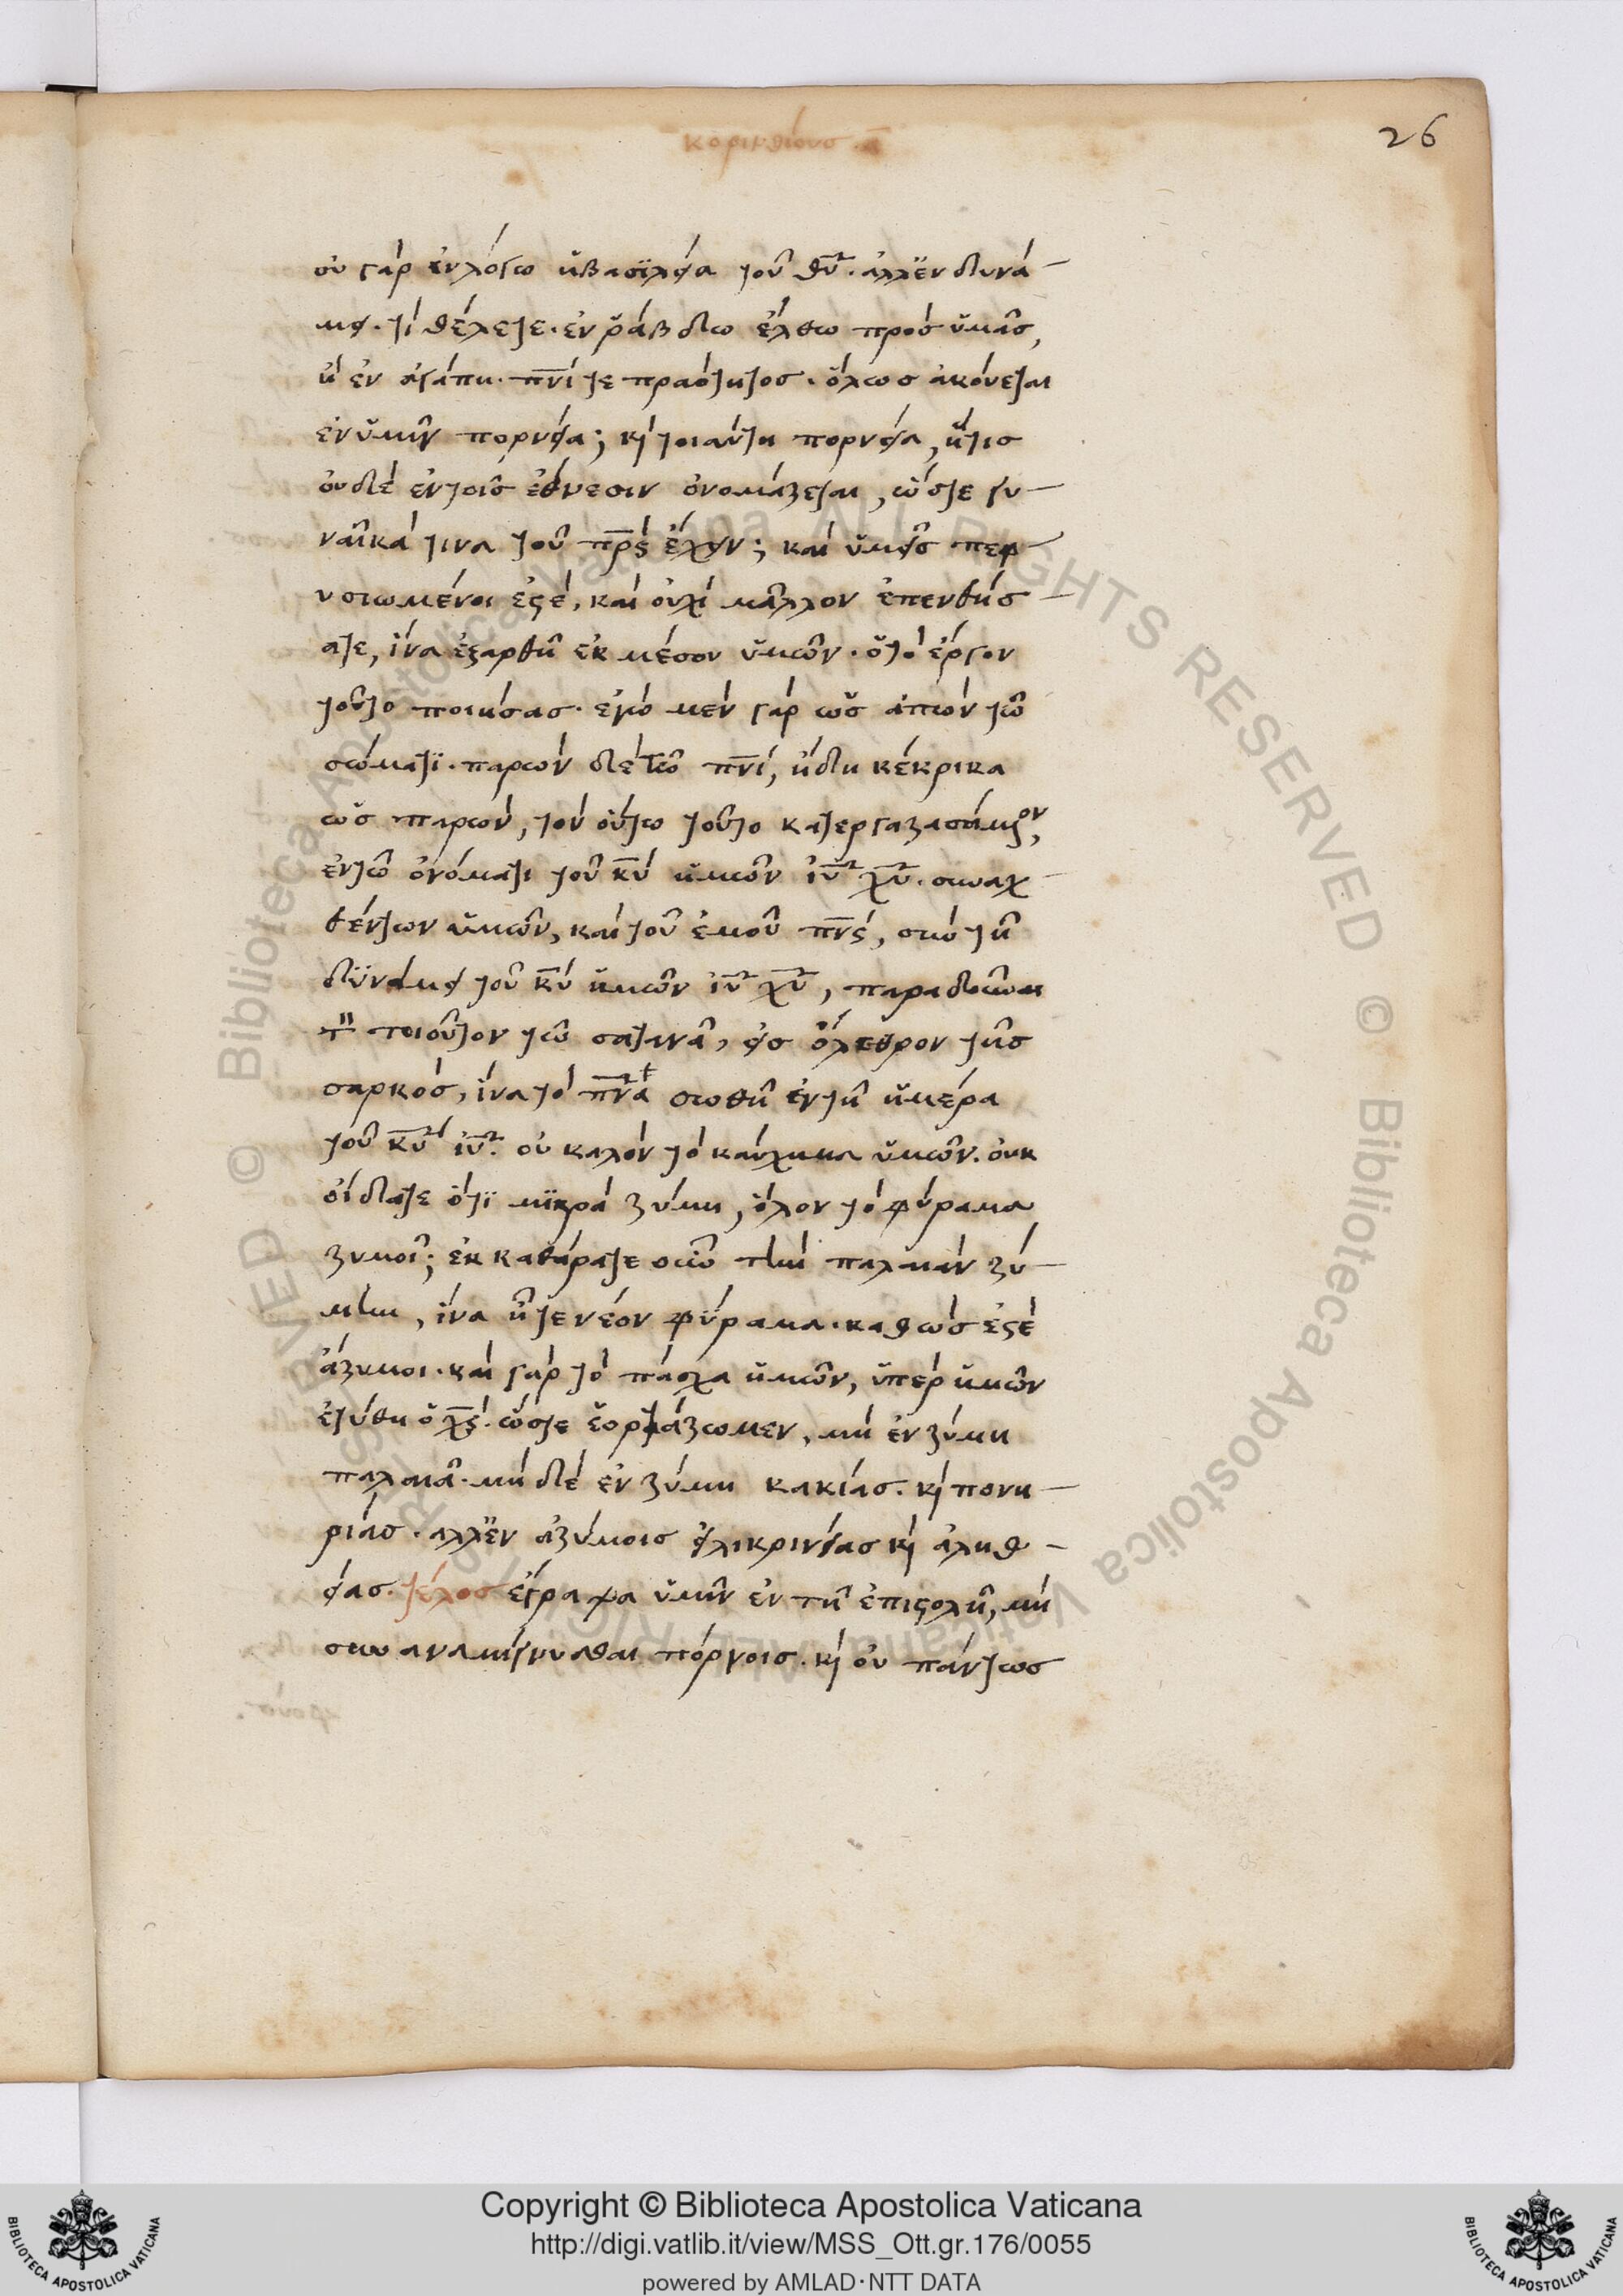 κορινθίους ·α̅
26
οὐ γὰρ ἐν λόγω ἡ βασϊλεία τοῦ θ̅υ̅· ἀλλ' ἐν δυνά
μει· τί θέλετε· ἐν ῥάβδω ἔλθω πρὸς ὑμᾶς,
ἢ ἐν ἀγάπη· π̅ν̅ί τε πραότητος· ὅλως ἀκούεται
ἐν ὑμῖν πορνεία; κὶ τοιαύτη πορνεία, ἥτις
οὐδὲ ἐν τοῖς ἔθνεσιν ὀνομάζεται, ὥστε γυ
ναῖκά τινα τοῦ π̅ρ̅ς ἔχειν; καὶ ὑμεῖς πεφ
υσιωμένοι ἐστέ, καὶ οὐχὶ μᾶλλον ἐπενθήσ
ατε, ἵνα ἐξαρθῆ ἐκ μέσου ὑμῶν· ὁ τὸ ἔργον
τοῦτο ποιήσας· ἐγὼ μὲν γὰρ ὡς ἀπὼν τῶ
σώματϊ· παρὼν δὲ τῶ π̅ν̅ί, ἤδη κέκρικα
ὡς παρών, τὸν οὕτω τοῦτο κατεργαζασάμενον,
ἐν τῶ ὀνόματι τοῦ κ̅υ̅ ἡμῶν ἰ̅υ̅ χ̅υ̅· συναχ
θέντων ὑμῶν, καὶ τοῦ ἐμοῦ π̅ν̅ς, σὺν τῆ
δϋνάμει τοῦ κ̅υ̅ ἡμῶν ἰ̅υ̅ χ̅υ̅, παραδοῦναι
τὸν τοιοῦτον τῶ σατανᾶ, εἰς ὄλεθρον τῆς
σαρκός, ἵνα τὸ π̅ν̅α σωθῆ ἐν τῆ ἡμέρα
τοῦ κ̅υ̅ ἰ̅υ̅· οὐ καλὸν τὸ καύχημα ὑμῶν· οὐκ
οἴδατε ὅτϊ μϊκρὰ ζύμη, ὅλον τὸ φύραμα
ζυμοῖ; ἐκκαθάρατε οὖν τὴν παλαιὰν ζύ
μην, ἵνα ἦτε νέον φϋραμα· καθώς ἐστε
ἄζυμοι· καὶ γὰρ τὸ πάσχα ἡμῶν, ὑπὲρ ἡμῶν
ἐτύθη ὁ χ̅ς· ὥστε ἑορτάζωμεν, μὴ ἐν ζύμη
παλαιᾶ· μὴ δὲ ἐν ζύμη κακίας· κὶ πονη
ρίας· ἀλλ' ἐν ἀζύμοις εἰλικρινείας κὶ ἀληθ
είας· τέλος ἔγραψα ὑμῖν ἐν τῆ ἐπιστολῆ, μὴ
συναναμίγνυσθαι πόρνοις· κὶ οὐ πάντως
Copyright © Biblioteca Apostolica Vaticana
http://digi.vatlib.it/view/MSS_Ott.gr.176/0055
powered by AMLAD·NTT DATA